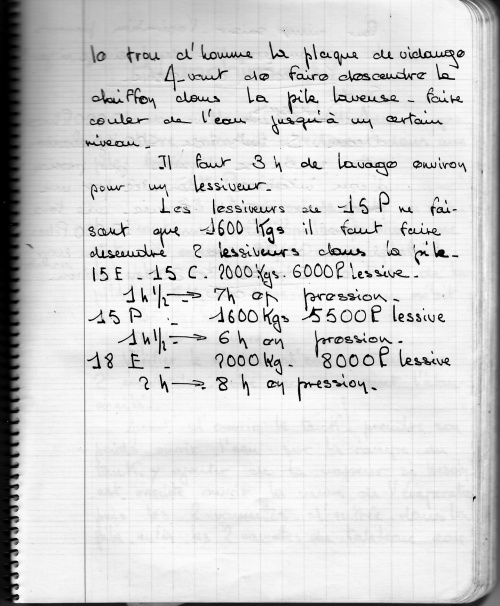 le trou d'homme la plaque de vidange
Avant de faire descendre le
chiffon dans la pile laveuse - faire
couler de l'eau jusqu'à un certain
niveau -
Il faut 3 h de lavage environ
pour un lessiveur -
Les lessiveurs de 15 P ne fai-
sant que 1600 Kgs il faut faire
descendre 2 lessiveurs dans la pile -
15 E - 15 C. 2000 Kgs. 6000 l lessive -
1h 1/2 → 7h en pression -
15 P : 1600 Kgs 5500 l lessive
1h 1/2 → 6 h en pression -
18 E - 2000 Kg. 8000 l lessive
2 h → 8 h en pression.